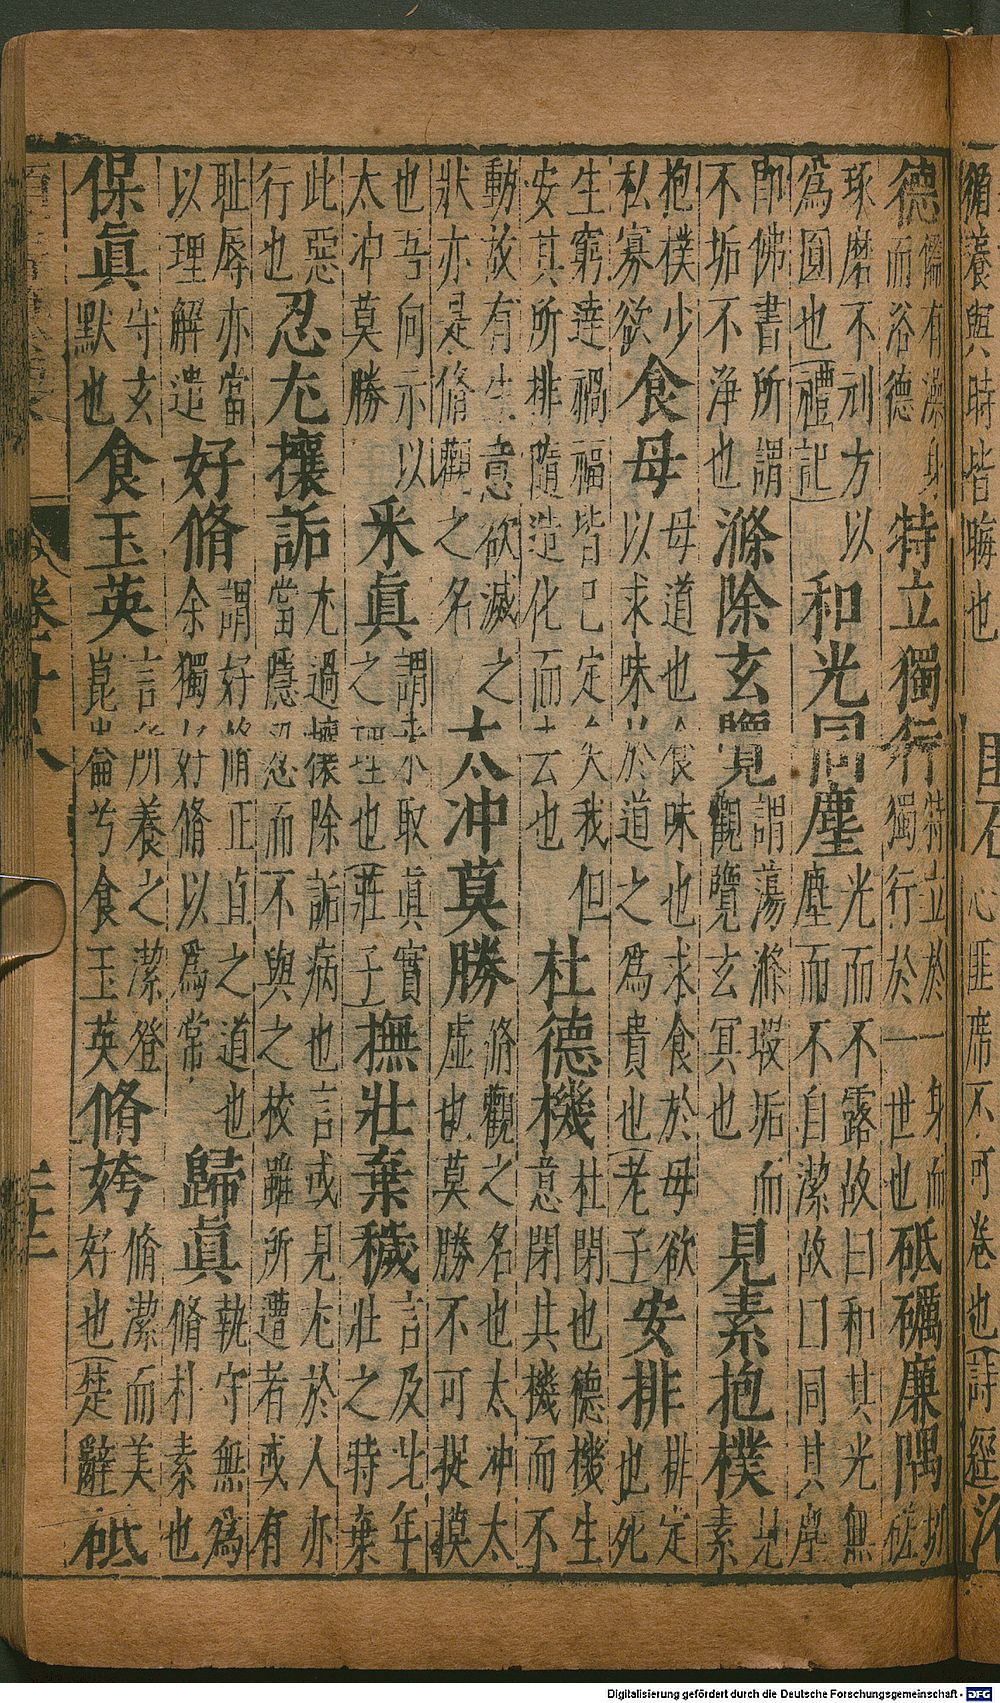 循養與時皆晦也 匪石 心匪席不可卷也(詩經)
德儒有澡身而浴德 特立獨行特立於一身而獨行於一世也 砥礪廉隅切磋
琢磨不刓方以爲圓也(禮記) 和光同塵光而不露故曰和其光無塵而不自潔故曰同其塵
即佛書所謂不垢不淨也 滌除玄覽謂蕩滌瑕垢而觀覽玄冥也 見素抱樸見素
抱樸少私寡欲 食母母道也食味也求食於母欲以求味於道之爲貴也(老子) 安排排定也死
生窮達禍福皆已定矣我但安其所排隨造化而去也 杜德機杜閉也德機生意閉其機而不
動故有生意欲滅之狀亦是脩觀之名 太冲莫勝脩觀之名也太冲太虛也莫勝不可捉摸
也吾向示以太冲莫勝 采眞謂采取眞實之理也(莊子) 撫壯棄穢言及此年壯之時棄
此惡行也 忍尤攘詬尤過攘除詬病也言或見尤於人亦當隱忍而不與之校雖所遭者或有
耻辱亦當以理解遣 好脩謂好脩正直之道也余獨好脩以爲常 歸眞執守無爲脩朴素也
保眞守玄默也 食玉英言所養之潔登崑崙兮食玉英 脩姱脩潔而美好也(楚辭) 砥
卷十八 二十二
Digitalisierung gefördert durch die Deutsche Forschungsgemeinschaft - DFG